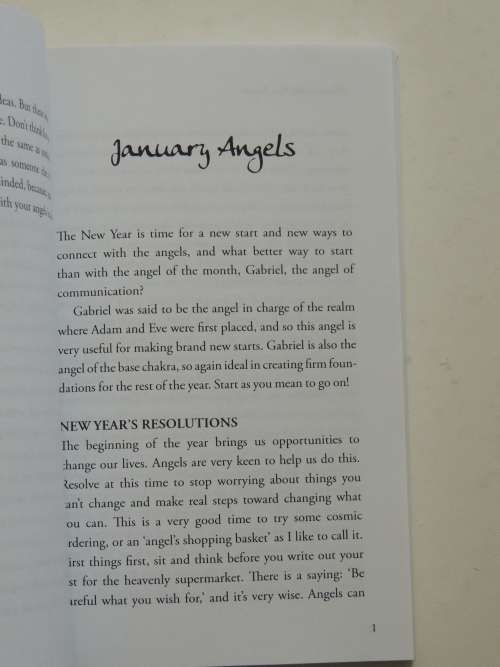 deas. But these
e. Don't think
the same as
as someone
minded, because
with your angels
January Angels
The New Year is time for a new start and new ways to
connect with the angels, and what better way to start
than with the angel of the month, Gabriel, the angel of
communication?
Gabriel was said to be the angel in charge of the realm
where Adam and Eve were first placed, and so this angel is
very useful for making brand new starts. Gabriel is also the
angel of the base chakra, so again ideal in creating firm foun-
dations for the rest of the year. Start as you mean to go on!
NEW YEAR'S RESOLUTIONS
The beginning of the year brings us opportunities to
change our lives. Angels are very keen to help us do this.
Resolve at this time to stop worrying about things you
an't change and make real steps toward changing what
ou can. This is a very good time to try some cosmic
rdering, or an 'angel's shopping basket' as I like to call it.
irst things first, sit and think before you write out your
st for the heavenly supermarket. There is a saying: 'Be
areful what you wish for,' and it's very wise. Angels can
1